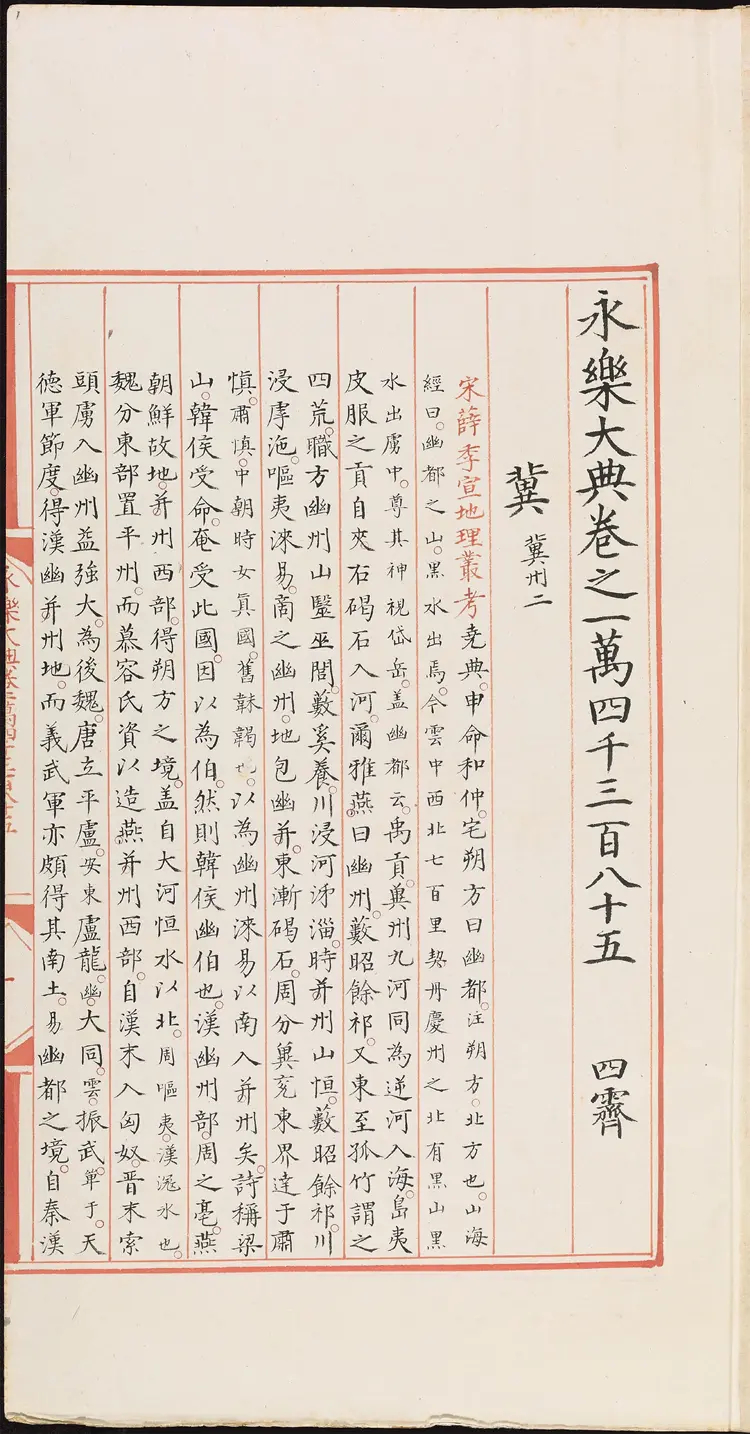 永樂大典卷之一萬四千三百八十五 四霽
冀 冀州二
宋薛季宣地理叢考堯典。申命和仲。宅朔方曰幽都。注朔方。北方也。山海
經曰。幽都之山。黑水出焉。今雲中西北七百里契丹慶州之北有黑山黑
水出虜中。尊其神視岱岳。蓋幽都云。禹貢。冀州九河同為逆河入海。島夷
皮服之貢自夾右碣石入河。爾雅燕曰幽州。藪昭餘祁。又東至孤竹謂之
四荒。職方幽州山毉巫閭。藪奚養。川浸河泲淄。時并州山恒。藪昭餘祁。川
浸虖沲。嘔夷淶易。商之幽州。地包幽并。東漸碣石。周分冀兗東界達于肅
慎。肅慎。中朝時女真國。舊韎鞨也。以為幽州淶易以南入并州矣。詩稱梁
山。韓侯受命。奄受此國。因以為伯。然則韓侯幽伯也。漢幽州部。周之亳。燕
朝鮮故地。并州西部。得朔方之境。蓋自大河恒水以北。周嘔夷。漢滱水也。
魏分東部置平州。而慕容氏資以造燕并州西部。自漢末入匈奴。晋末索
頭虜入幽州益強大。為後魏。唐立平盧。安東盧龍。幽大同。雲振武。單于。天
德軍節度。得漢幽并州地。而義武軍亦頗得其南土。易幽都之境。自秦漢
永樂大典卷一萬四千三百八十五
一